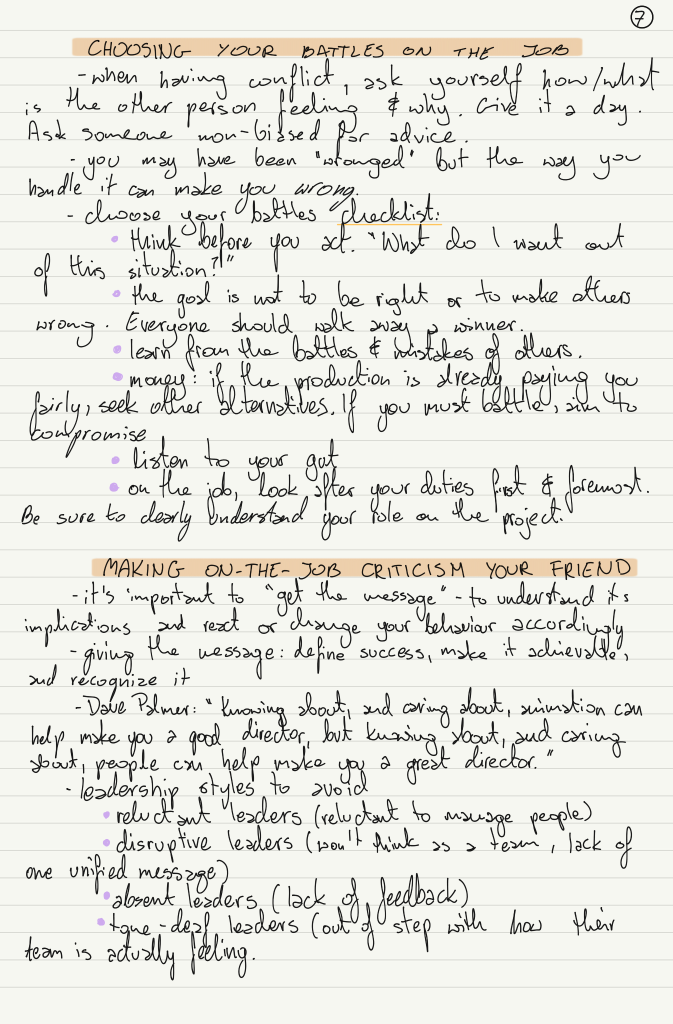 7
CHOOSING YOUR BATTLES ON THE JOB
-when having conflict, ask yourself how/what
is the other person feeling & why. Give it a day.
Ask someone non-biased for advice.
- you may have been "wronged" but the way you
handle it can make you wrong.
- choose your battles checklist:
• think before you act. "What do I want out
of this situation?"
• the goal is not to be right or to make others
wrong. Everyone should walk away a winner.
• learn from the battles & mistakes of others.
• money: if the production is already paying you
fairly, seek other alternatives. If you must battle, aim to
compromise
• listen to your gut
• on the job, look after your duties first & foremost.
Be sure to clearly understand your role on the project.
MAKING ON-THE-JOB CRITICISM YOUR FRIEND
-it's important to "get the message" - to understand its
implications and react or change your behaviour accordingly
- giving the message: define success, make it achievable,
and recognize it
-Dave Palmer: "Knowing about, and caring about, animation can
help make you a good director, but knowing about, and caring
about, people can help make you a great director."
- leadership styles to avoid
• reluctant leaders (reluctant to manage people)
• disruptive leaders (won't think as a team, lack of
one unified message)
• absent leaders (lack of feedback)
• tone-deaf leaders (out of step with how their
team is actually feeling.